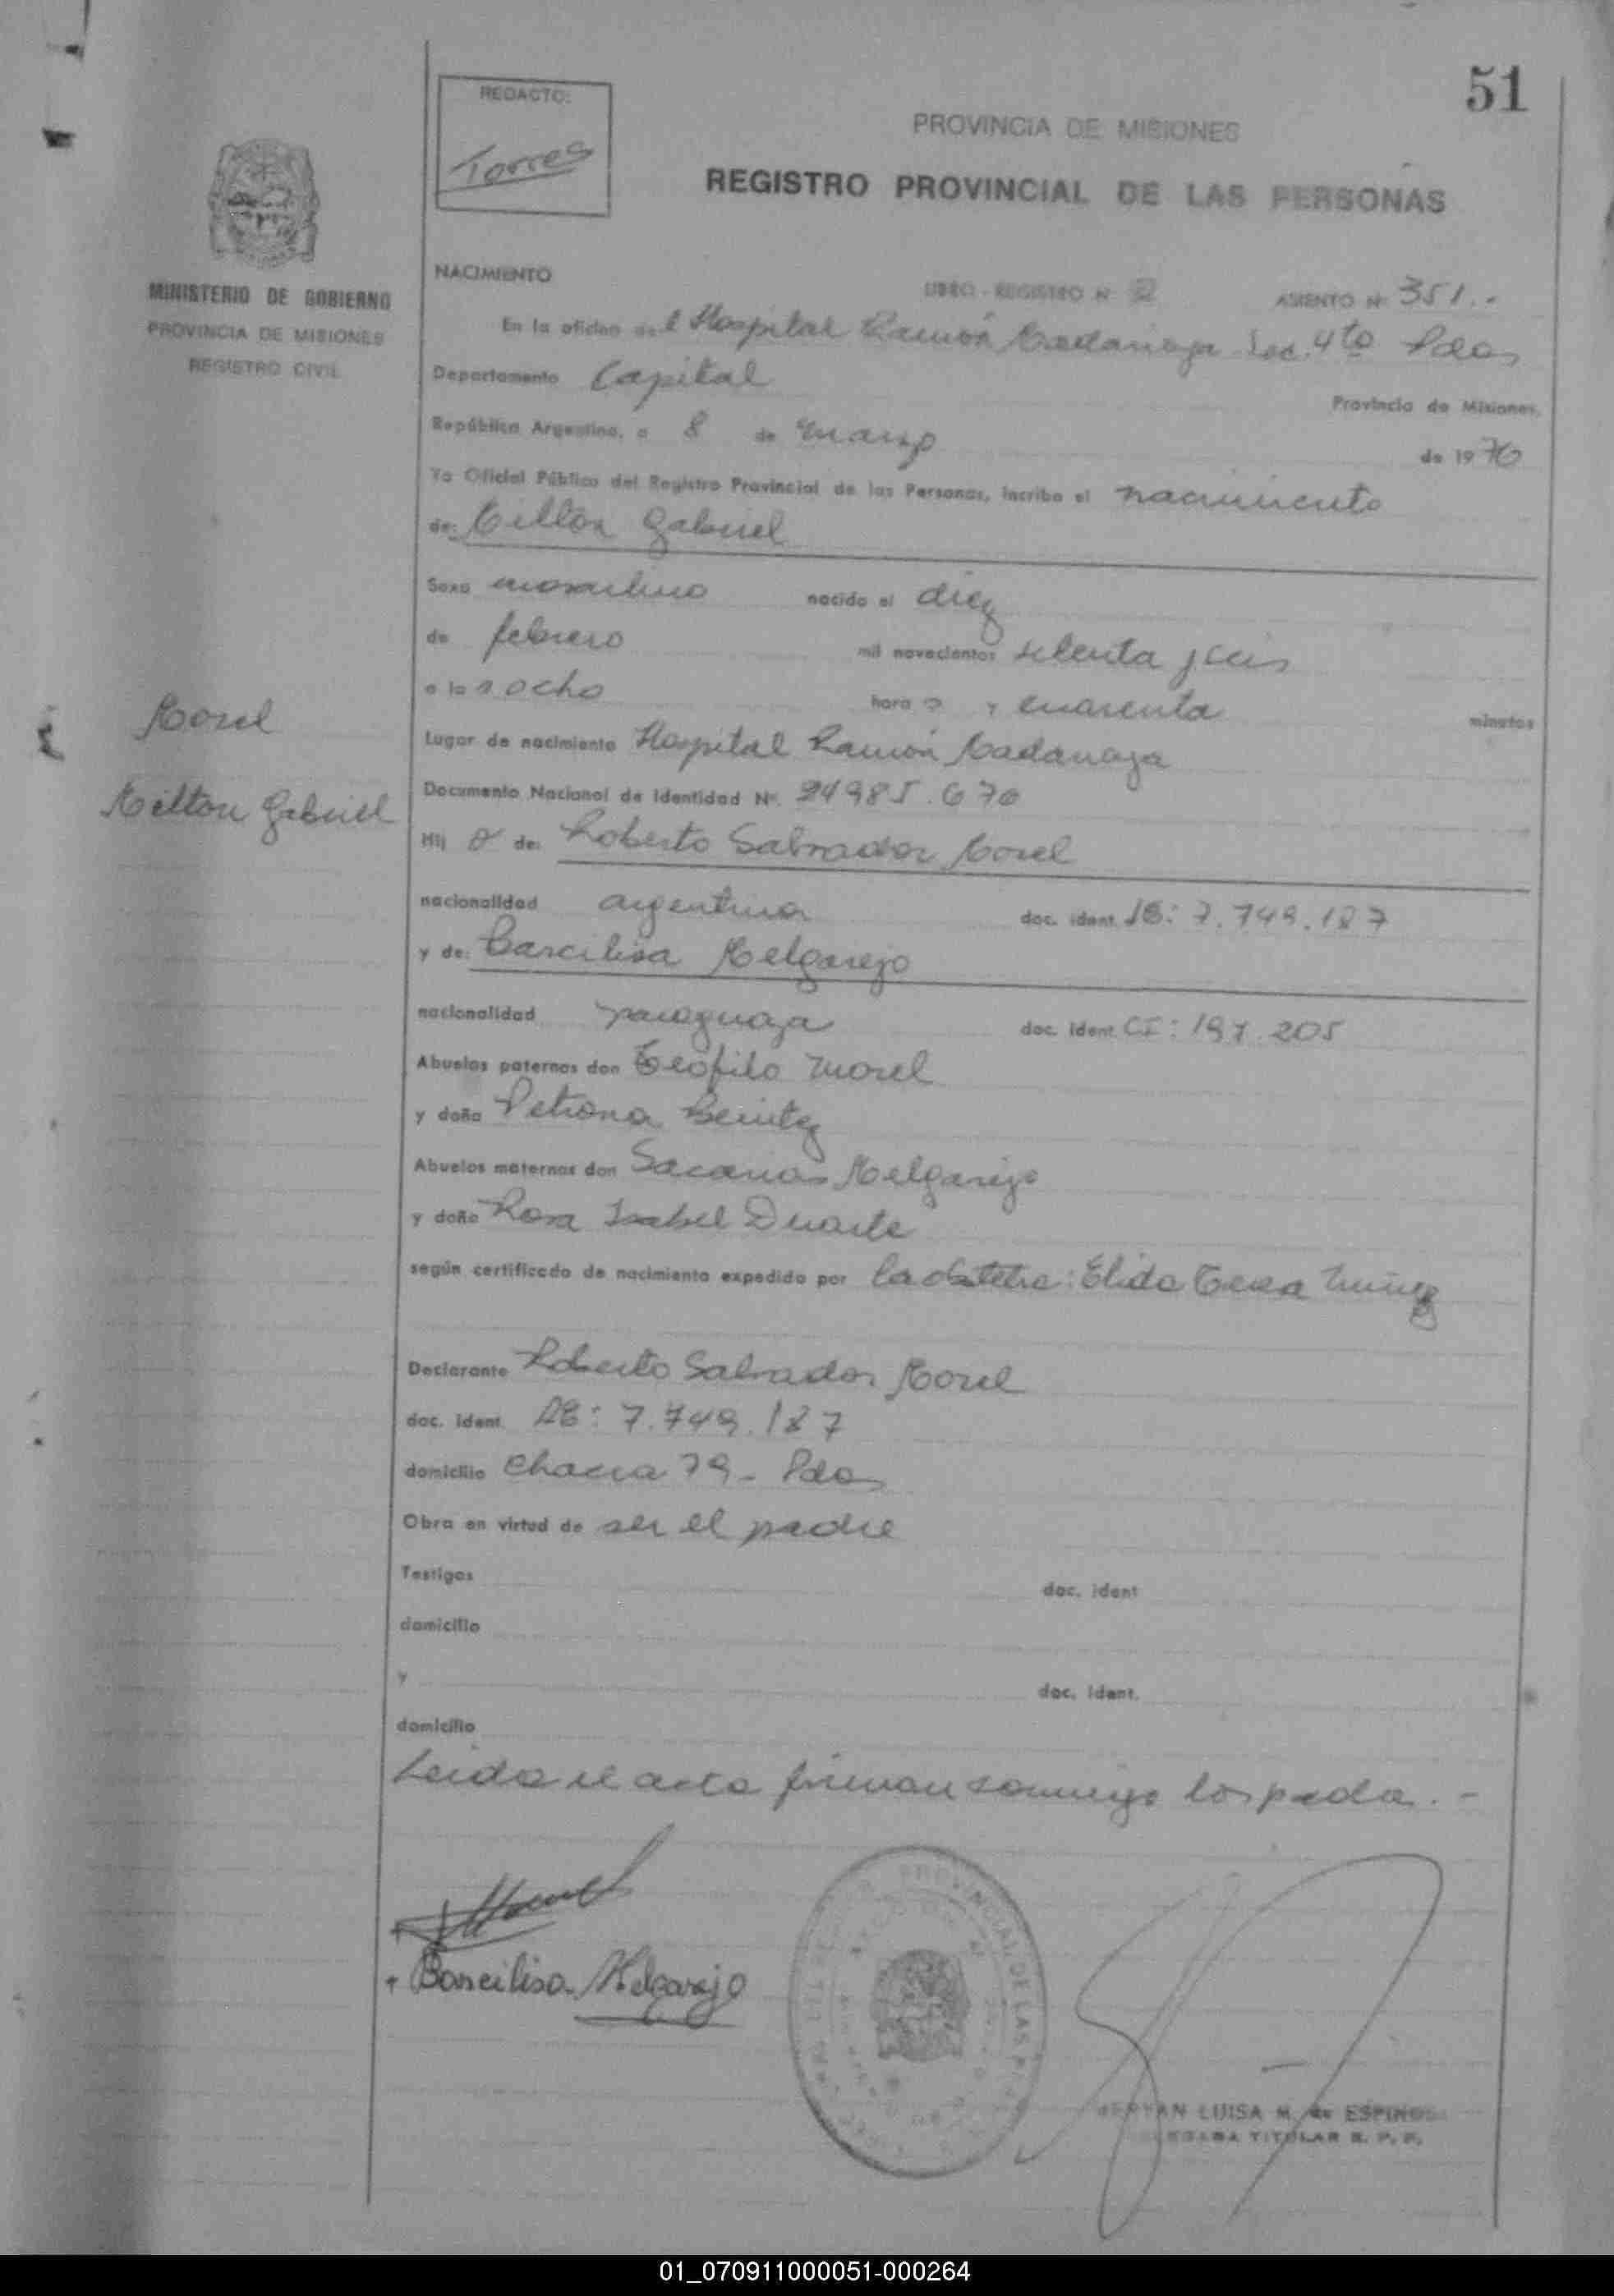 51
REDACTO:
Torres
PROVINCIA DE MISIONES
REGISTRO PROVINCIAL DE LAS PERSONAS
MINISTERIO DE GOBIERNO
PROVINCIA DE MISIONES
REGISTRO CIVIL
NACIMIENTO
LIBRO - REGISTRO Nº 2 ASIENTO Nº 351.-
En la oficina del Hospital Ramón Madariaga Sec. 4to Pdas
Departamento Capital Provincia de Misiones,
República Argentina, a 8 de marzo de 1976
Yo Oficial Público del Registro Provincial de las Personas, incribo el nacimiento
de: Milton Gabriel
Sexo masculino nacido el diez
de febrero mil novecientos setenta y seis
a las ocho horas y cuarenta minutos
Morel
Milton Gabriel
Lugar de nacimiento Hospital Ramón Madariaga
Documento Nacional de Identidad Nº 24985.670
Hijo de: Roberto Salvador Morel
nacionalidad argentina doc. ident. LE: 7.749.187
y de: Barcilisa Melgarejo
nacionalidad paraguaya doc. ident. CI: 197.205
Abuelos paternos don Teófilo Morel
y doña Petrona Benitez
Abuelos maternos don Sacarias Melgarejo
y doña Rosa Isabel Duarte
según certificado de nacimiento expedido por la obstetra: Elida Nuñez
Declarante Roberto Salvador Morel
doc. ident. LE: 7.749.187
domicilio Chacra 79 - Pdas
Obra en virtud de ser el padre
Testigos doc. ident
domicilio
y doc. ident.
domicilio
Leida el acta firman conmigo los padres.-
Barcilisa Melgarejo
PROVINCIAL DE LAS
LUISA M. de ESPINOSA
TITULAR R. P. P.
01_070911000051-000264